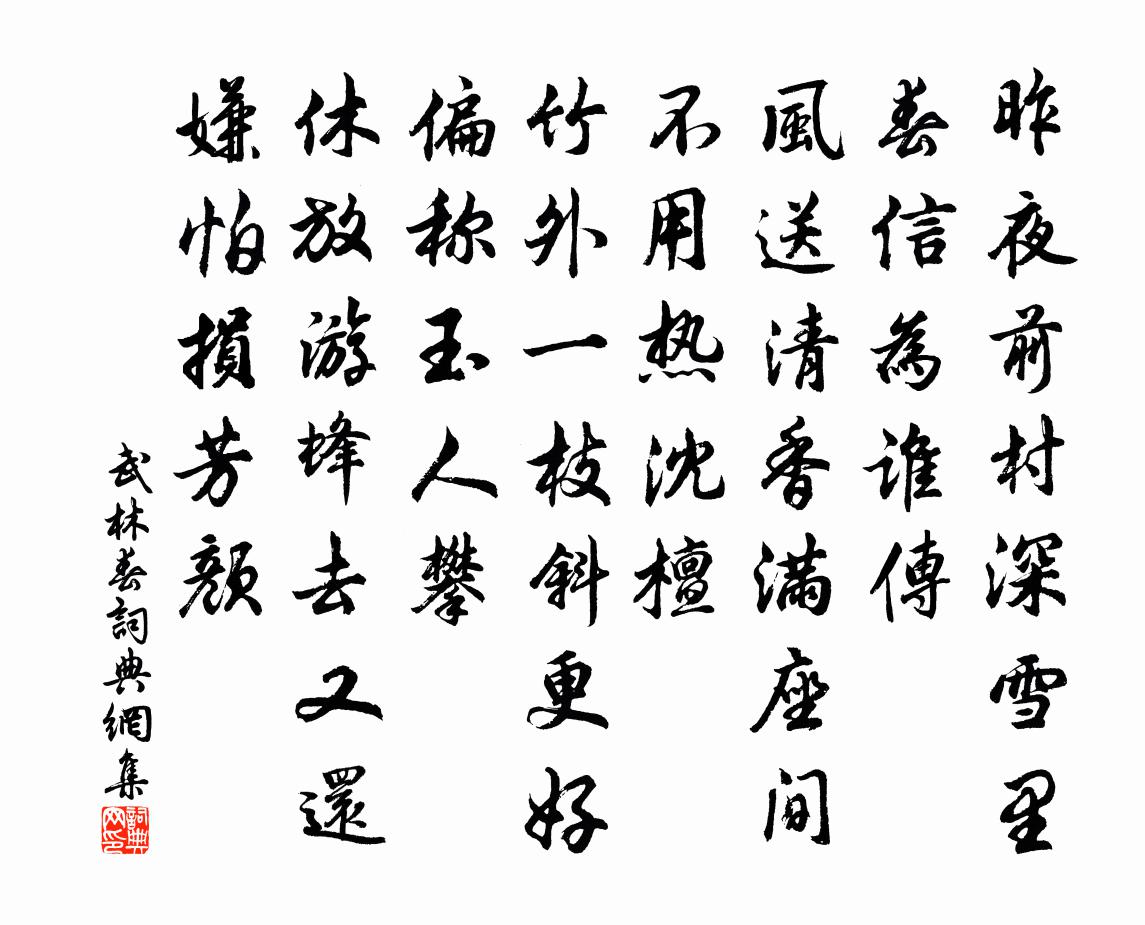 昨夜前村深雪里
春信為谁傳
風送清香满座间
不用热沈檀
竹外一枝斜更好
偏称玉人攀
休放游蜂去又還
嫌怕損芳顔
武林春詞典網集
詞典网印